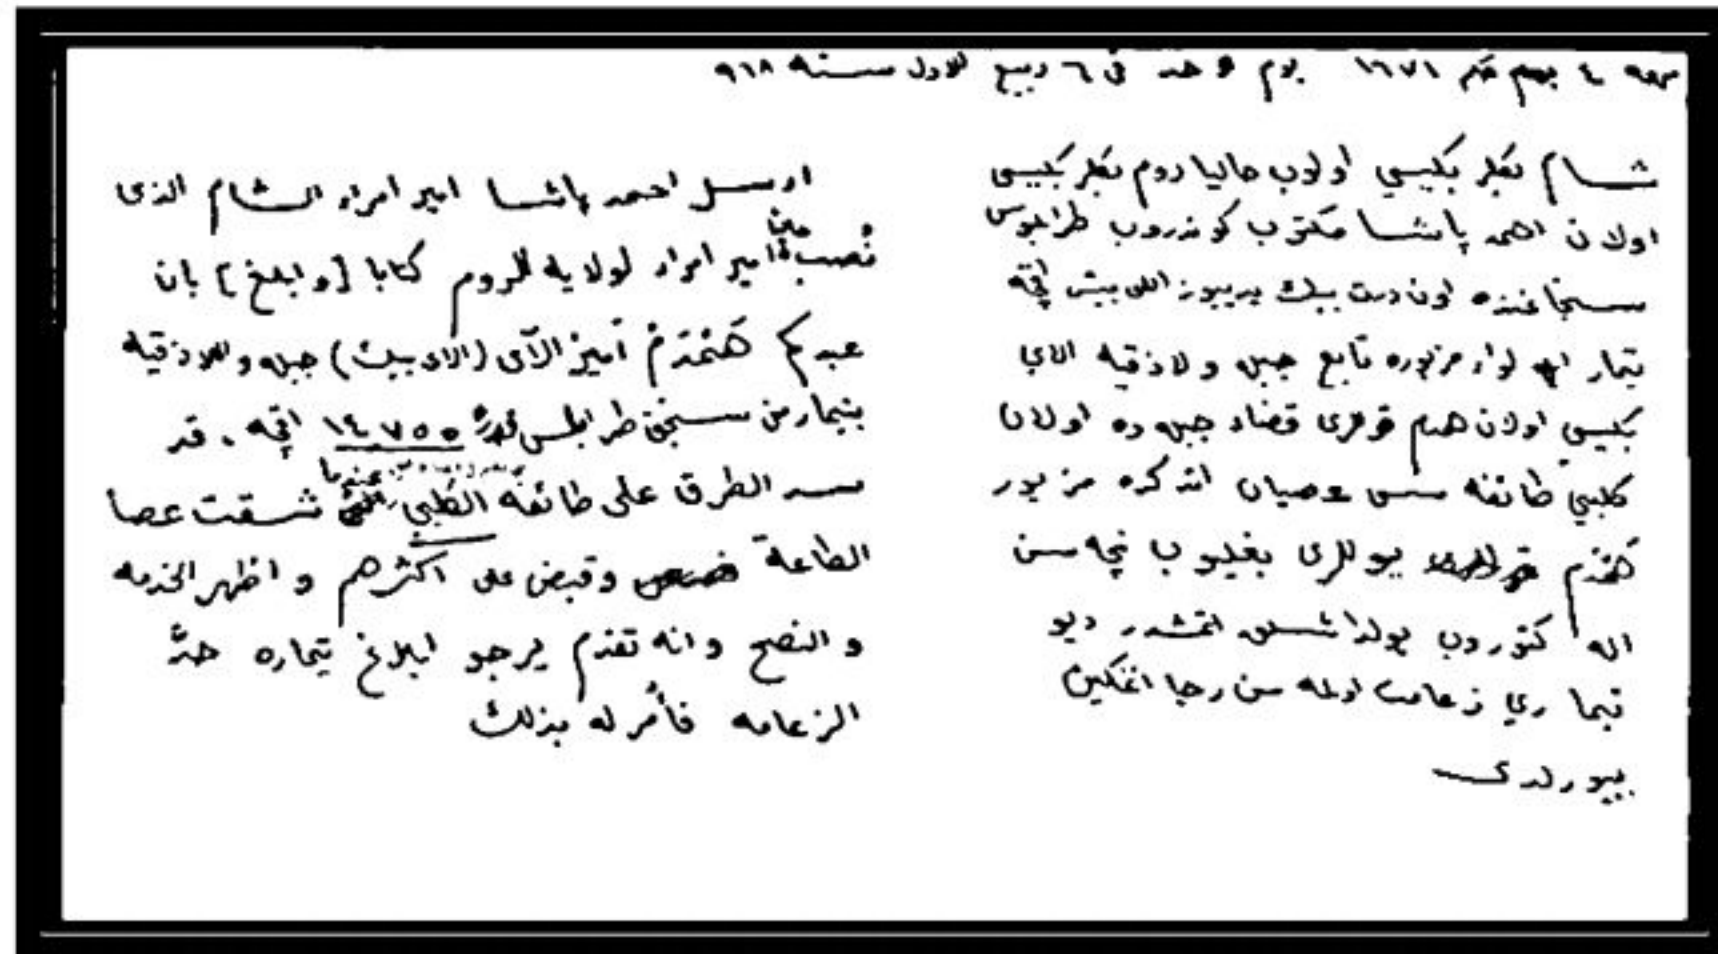 مهمه ٤ بهم حكم ١٦٧١ يوم الاحد في ٦ ربيع الاول سنه ٩١٨
شام بكلر بكيسي اولوب حاليا روم بكلر بكيسى
اولان احمد پاشا مكتوب كوندروب طرابلوس
سنجاغنده اون درت بيك يديوز اللى بيش اقچه
تيمار ايله لواء مزبوره تابع جبله ولاذقيه الاى
بكيسي اولان هندم قوللرى قضاء جبله ده اولان
كلبي طائفه سى عصيان اتدكده مزبور
هندم يوللرى بغليوب نچه سن
اله كتوروب يولداشلق اتمشدر ديو
تيماري زعامت اولمه سن رجا اتمكين
بيورلدى
ارسل احمد پاشا امير امراء الشام الذى
نُصب حاليا امير امراء لولاية الروم كتابا [وابلغ] بان
عبدكم هَندَم امير الآى (الاى بيك) جبله واللاذقيه
بتيمار من سنجق طرابلس قدره ١٤٧٥٥ اقچه، قد
سد الطرق على طائفة الكلبي عندما شقت عصا
الطاعة وقبض على اكثرهم واظهر الخدمه
والنصح وانه تقدم يرجو ابلاغ تيماره حدَّ
الزعامه فأمر له بذلك